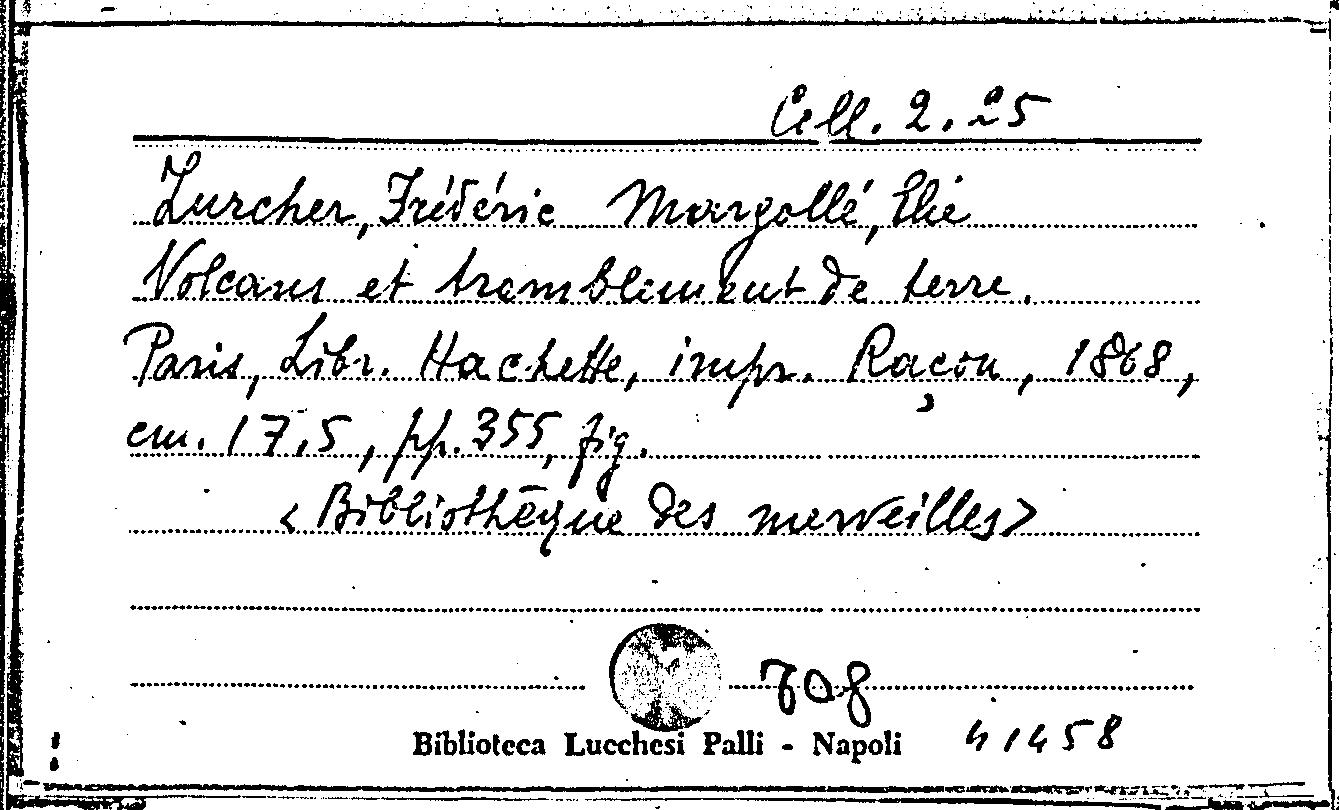 Coll. 2. 25
Zurcher, Frédéric Margollé, Elie
Volcans et tremblement de terre.
Paris, Libr. Hachette, impr. Raçon, 1868,
cm. 17,5, pp. 355, fig.
<Bibliothèque des merveilles>
708
Biblioteca Lucchesi Palli - Napoli 41458